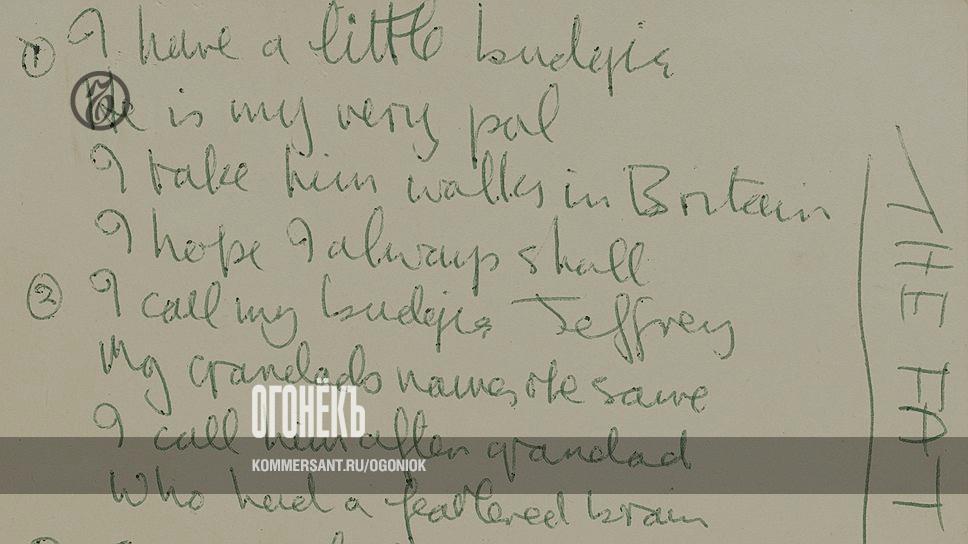 ① I have a little budgie
He is my very pal
I take him walks in Britain
I hope I always shall
② I call my budgie Jeffrey
My grandads names the same
I call him after grandad
Who had a feathered brain
THE FAT
ОГОНЁКЪ
KOMMERSANT.RU/OGONIOK